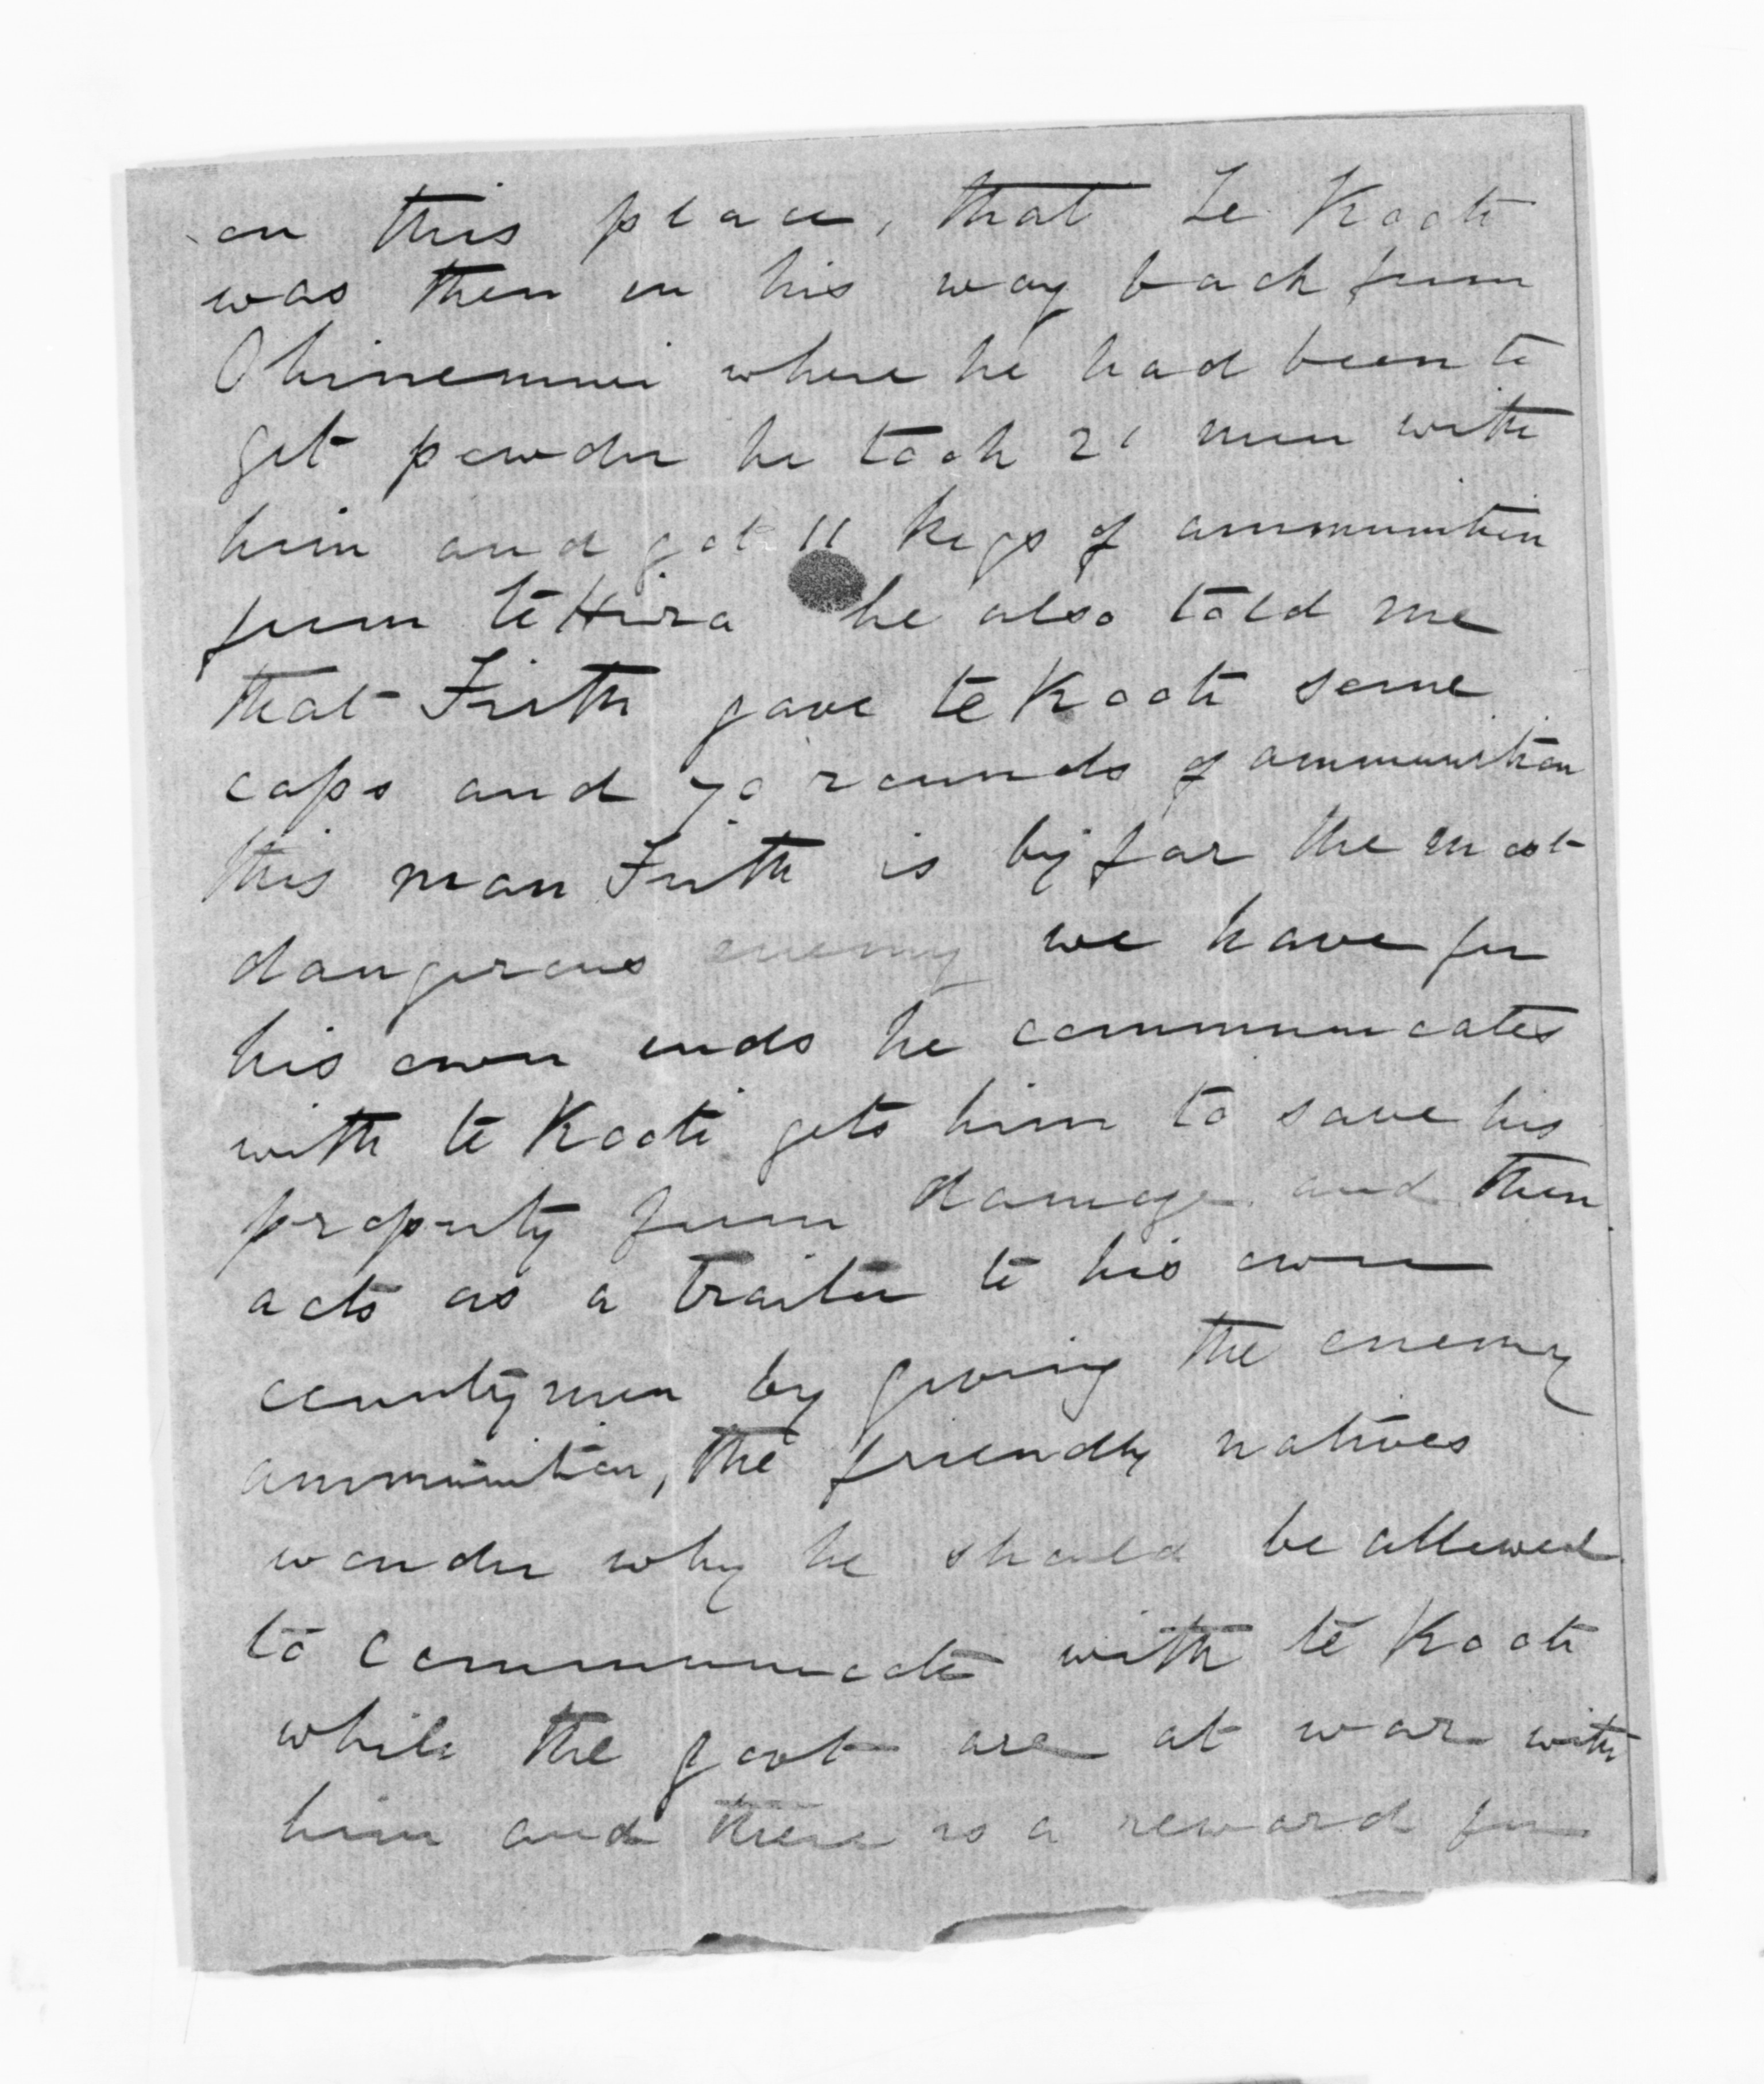 on this place, that Te Kooti
was then on his way back from
Ohinemuri where he had been to
get powder he took 20 men with
him and got 11 kegs of ammunition
from te Hira he also told me
that Firth gave te Kooti some
caps and 70 rounds of ammunition
this man Firth is by far the most
dangerous enemy we have for
his own ends he communicates
with te Kooti gets him to save his
property from damage and then
acts as a traitor to his own
countrymen by giving the enemy
ammunition, the friendly natives
wonder why he should be allowed
to communicate with te Kooti
while the govt are at war with
him and there is a reward for